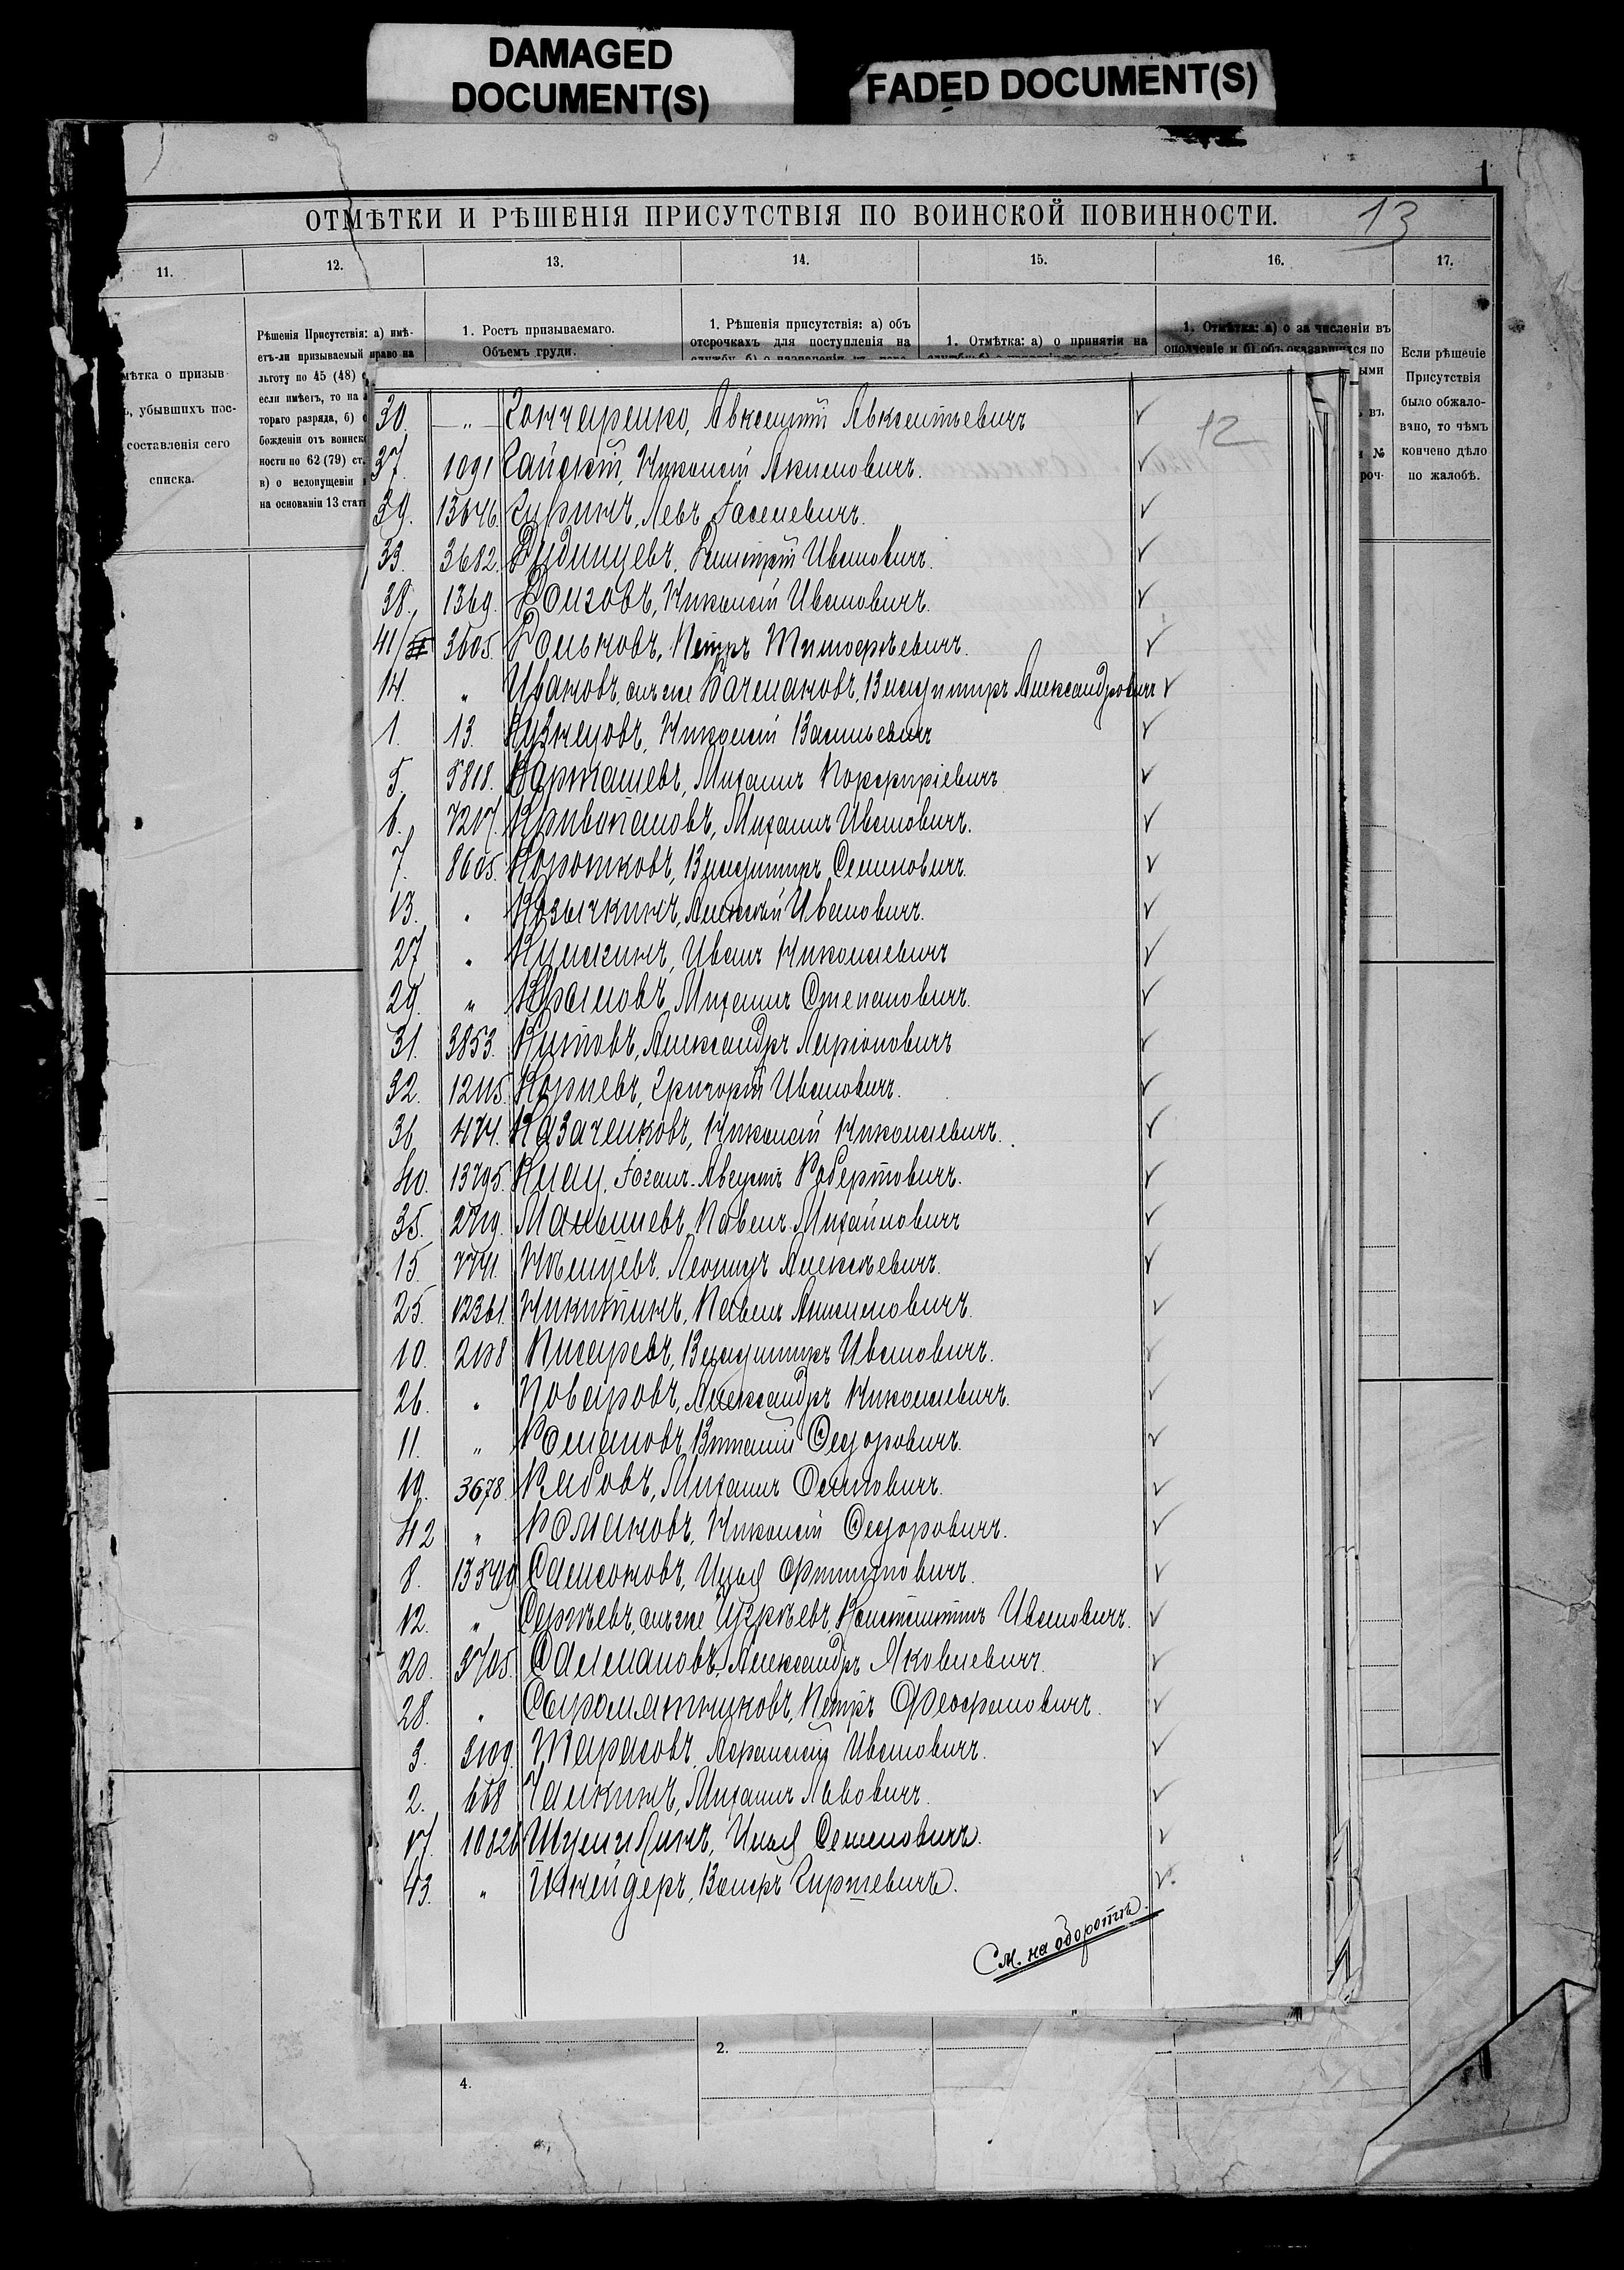 DAMAGED
DOCUMENT(S)
FADED DOCUMENT(S)
ОТМѢТКИ И РѢШЕНІЯ ПРИСУТСТВІЯ ПО ВОИНСКОЙ ПОВИННОСТИ.
13
11.
12.
13.
14.
15.
16.
17.
мѣтка о призыв
ъ, убывшихъ пос-
составленія сего
списка.
Рѣшенія Присутствія: а) имѣ-
етъ-ли призываемый право на
льготу по 45 (48)
если имѣетъ, то на
тораго разряда, б)
божденіи отъ воинск
ности по 62 (79) ст.
в) о недопущеніи
на основаніи 13 стат
1. Ростъ призываемаго.
Объемъ груди.
1. Рѣшенія присутствія: а) объ
отсрочкахъ для поступленія на
1. Отмѣтка: а) о принятіи на
1. Отмѣтка: а) о зачисленіи въ
ополченіе и б) объ оказавшихся по
ыми
въ
№
роч-
Если рѣшеніе
Присутствія
было обжало-
вано, то чѣмъ
кончено дѣло
по жалобѣ.
12
30. " Гончаренко, Авксентій Авксентьевичъ ✓
37. 1091 Гайскій, Николай Акимовичъ. ✓
39. 13646. Гуринъ, Левъ ✓
33. 3682. Дудинцевъ, Дмитрій Ивановичъ. ✓
38. 1369. Николай Ивановичъ. ✓
41 3605. Петръ Тимофѣевичъ. ✓
14. " Ивановъ, онъ же Владиміръ Александровичъ ✓
1. 13. Кузнецовъ, Николай Васильевичъ ✓
5. 5818. Карташевъ, Михаилъ Порфиріевичъ ✓
6. 7207. Кривопаловъ, Михаилъ Ивановичъ. ✓
7. 8605. Коротковъ, Владиміръ Семеновичъ. ✓
13. " Алексѣй Ивановичъ. ✓
27 " Иванъ Николаевичъ ✓
29. " Михаилъ Степановичъ. ✓
31. 3853. Александръ Ларіоновичъ ✓
32. 12115. Корневъ, Григорій Ивановичъ. ✓
36 474. Казаченковъ, Николай Николаевичъ. ✓
40. 13795. Іоганъ-Августъ Робертовичъ. ✓
35. 2719. Малышевъ, Павелъ Михайловичъ ✓
15. 7771. Нѣмцевъ, Леонидъ Алексѣевичъ. ✓
25. 12361. Никитинъ, Павелъ Анисимовичъ. ✓
10. 2108 Писаревъ, Владиміръ Ивановичъ. ✓
26. " Поваровъ, Александръ Николаевичъ. ✓
11. " Романовъ, Виталій Федоровичъ. ✓
19. 3678. Рябовъ, Михаилъ Осиповичъ. ✓
42 " Романовъ, Николай Федоровичъ. ✓
8. 13549 Самсоновъ, Илья Филипповичъ. ✓
12. " Сергѣевъ, онъ же Константинъ Ивановичъ. ✓
20. 3705. Салмановъ, Александръ Яковлевичъ. ✓
28. " Сыромятниковъ, Петръ Феофановичъ. ✓
3. 3109. Тарасовъ, Афанасій Ивановичъ. ✓
2. 668 Чалкинъ, Михаилъ Львовичъ. ✓
17. 10826 Илья Семеновичъ. ✓
43. " Шнейдеръ, ✓
См. на оборотѣ.
2.
4.